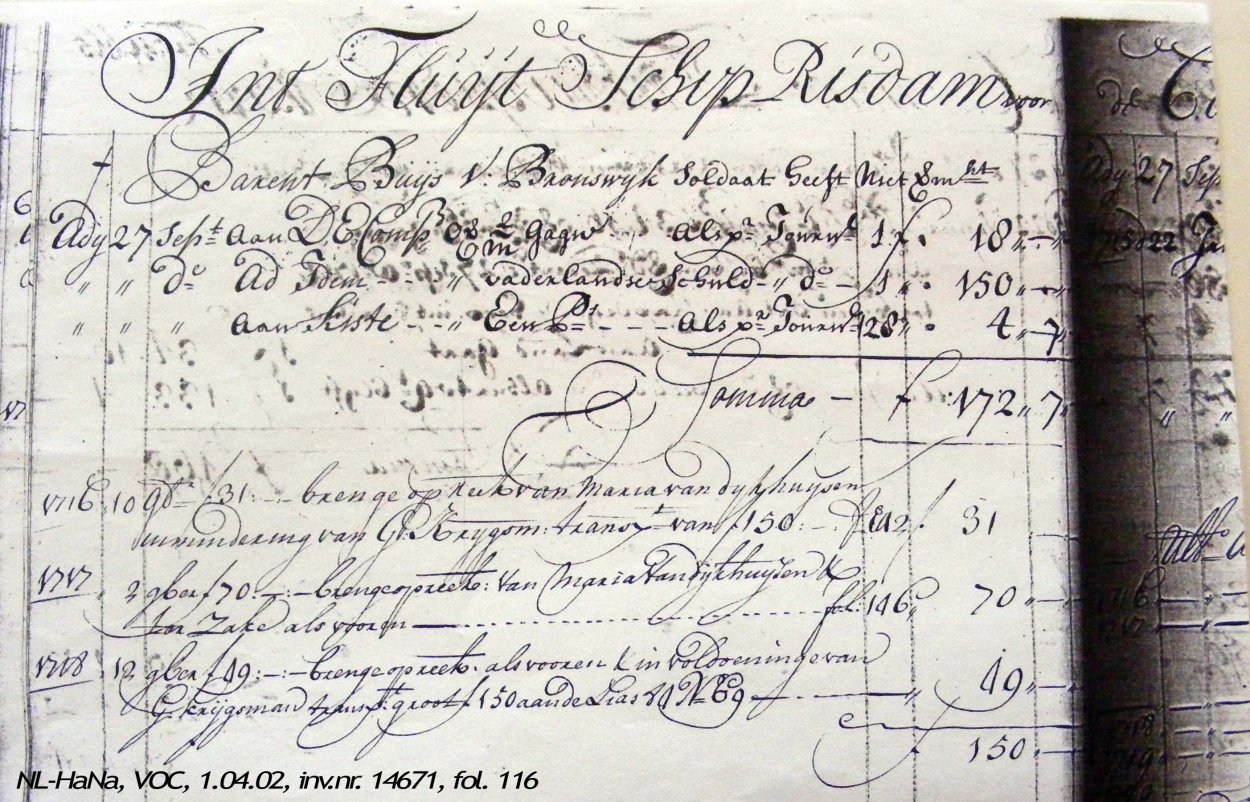 Int Fluijt Schip Risdam voor
Barent Buijs V: Bronswyk Soldaat heeft Niet
Ady 27 Sept aan D E Comp op 2/m gagie als pr Journl 1 f 18 „ —
„ „ do Ad Idem - - „ vaderlandse Schuld „ do — 1 „ 150 „ —
„ „ „ aan Kiste - - „ Een Ps - - - als pr Journl 128 „ 4 „ 7
Somma — f 172 „ 7
1716 10 f 31:-:- brenge op Reek van Maria van dijkhuijsen
in mindering van G: Krygsm: transpt van f 150:- f 142 f 31
1717 2 gber f 70:-:- brenge op reek: van Maria van dijkhuijsen &
ter Zake als vooren — fol: 146 70 —
1718 12 gber f 49:-:- brenge op reek: als vooren & in voldoeninge van
G: krijgsman transpt: groot f 150 aande Lias No 69 — „ 49 —
150 „ —
de
Ady 27 Sep
1715 d 22
1716
1717
1718
1719
NL-HaNa, VOC, 1.04.02, inv.nr. 14671, fol. 116